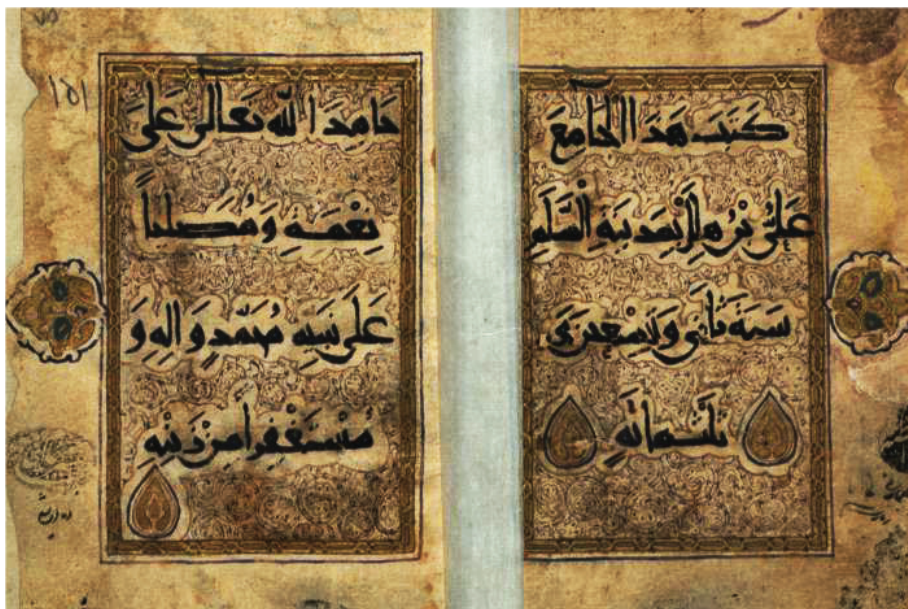 كَتَبَ هَذَا الْجَامِعَ
عَلِيُّ بْنُ هِلَالٍ بِمَدِينَةِ السَّلَمِ
سَنَةَ
ثَلَثِمِائَةٍ
حَامِدًا لِلَّهِ تَعَالَى عَلَى
نِعَمِهِ وَمُصَلِّيًا
عَلَى نَبِيِّهِ مُحَمَّدٍ وَآلِهِ وَ
مُسْتَغْفِرًا مِنْ ذَنْبِهِ
١٥١